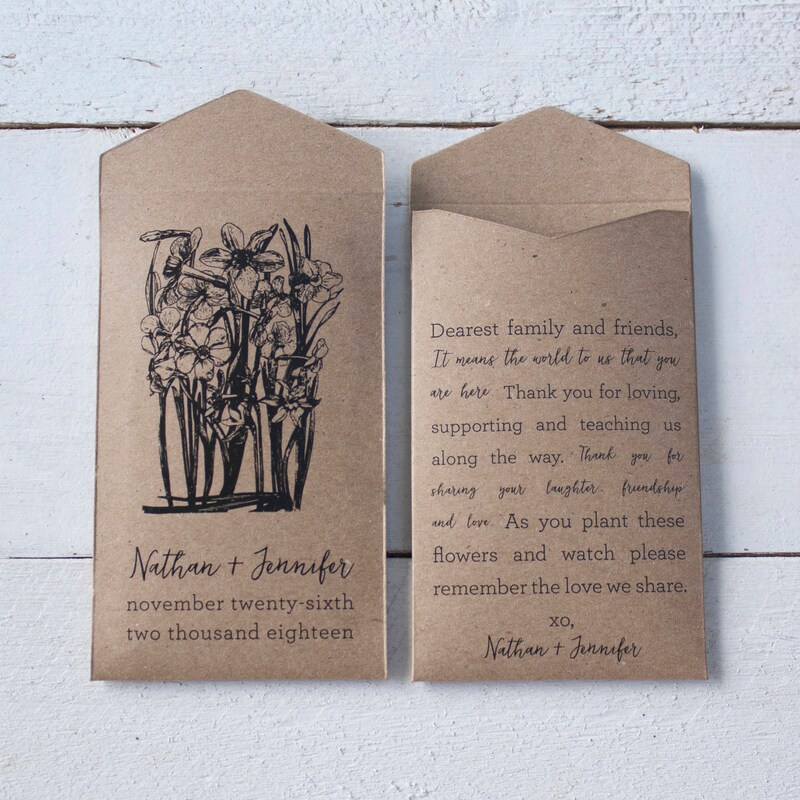 Nathan + Jennifer
november twenty-sixth
two thousand eighteen
Dearest family and friends,
It means the world to us that you
are here. Thank you for loving,
supporting and teaching us
along the way. Thank you for
sharing your laughter, friendship
and love. As you plant these
flowers and watch please
remember the love we share.
xo,
Nathan + Jennifer